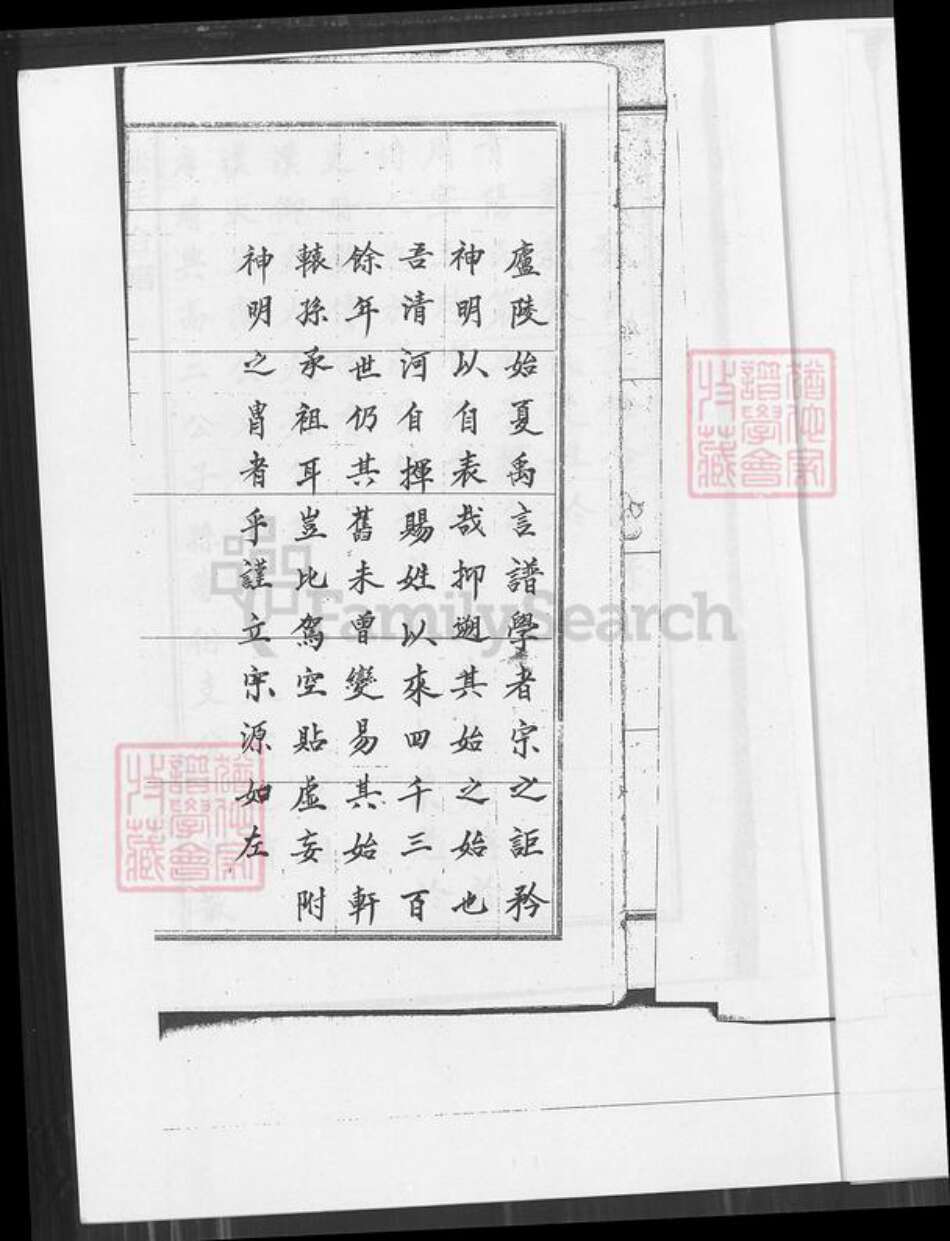 廬陵始夏禹言譜學者宗之詎矜
神明以自表哉抑遡其始之始也
吾清河自揮賜姓以來四千三百
餘年世仍其舊未曾變易其始軒
轅孫承祖耳豈比駕空貼虛妄附
神明之胄者乎謹立宗源如左
譜學會
收藏
譜學會
收藏
FamilySearch